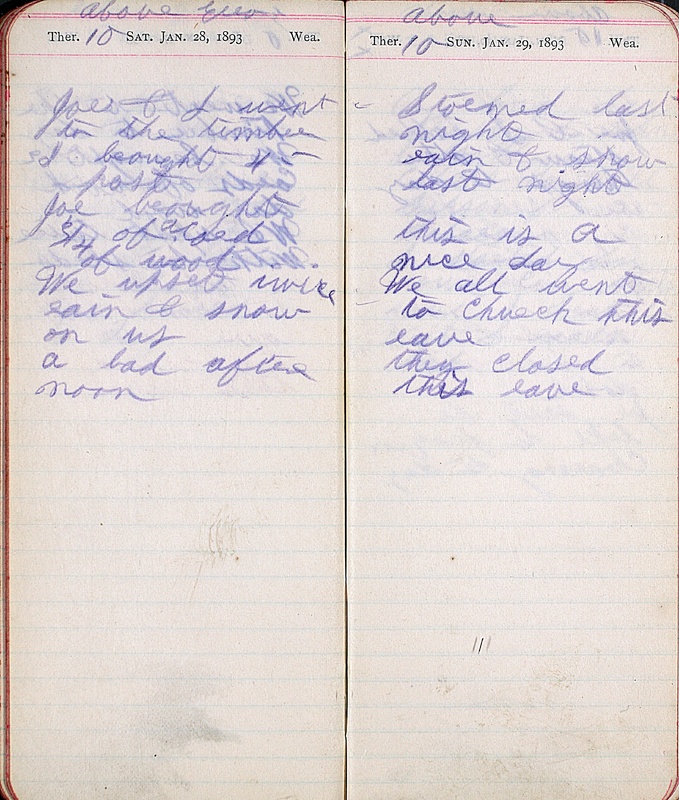 above zero
Ther. 10 SAT. JAN. 28, 1893 Wea.
Joe & I went
to the timber
I brought
post
Joe brought
3/4 of a Coed
of wood
We upset twice
rain & snow
on us
a bad after
noon
above
Ther. 10 SUN. JAN. 29, 1893 Wea.
Stormed last
night
rain & snow
last night
this is a
nice day
We all went
to Church this
eave
they closed
this eave